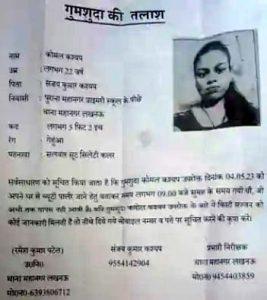 गुमशुदा की तलाश
नाम : कोमल कश्यप
उम्र : लगभग 22 वर्ष
पिता : संजय कुमार कश्यप
निवासी : पुराना महानगर प्राइमरी स्कूल के पीछे
थाना महानगर लखनऊ
कद : लगभग 5 फिट 2 इंच
रंग : गेहुंआ
पहनावा : सलवार सूट सिलेटी कलर
सर्वसाधारण को सूचित किया जाता है कि गुमशुदा कोमल कश्यप उपरोक्त दिनांक 04.05.23 को
अपने घर से ब्यूटी पार्लर जाने हेतु बताकर समय लगभग 09.00 बजे सुबह के समय गयी थी, जो
अभी तक वापस नहीं आयी है। यदि गुमशुदा कोमल कश्यप उपरोक्त के बारे में किसी सज्जन को
कोई जानकारी मिलती है तो नीचे दिये गये मोबाइल नम्बर व पते पर सूचित करने की कृपा करें।
(रमेश कुमार पटेल) संजय कुमार कश्यप प्रभारी निरीक्षक
उ0नि0 9554142904 थाना महानगर लखनऊ
थाना महानगर लखनऊ मो0नं0 9454403859
मो0नं0-6393606712